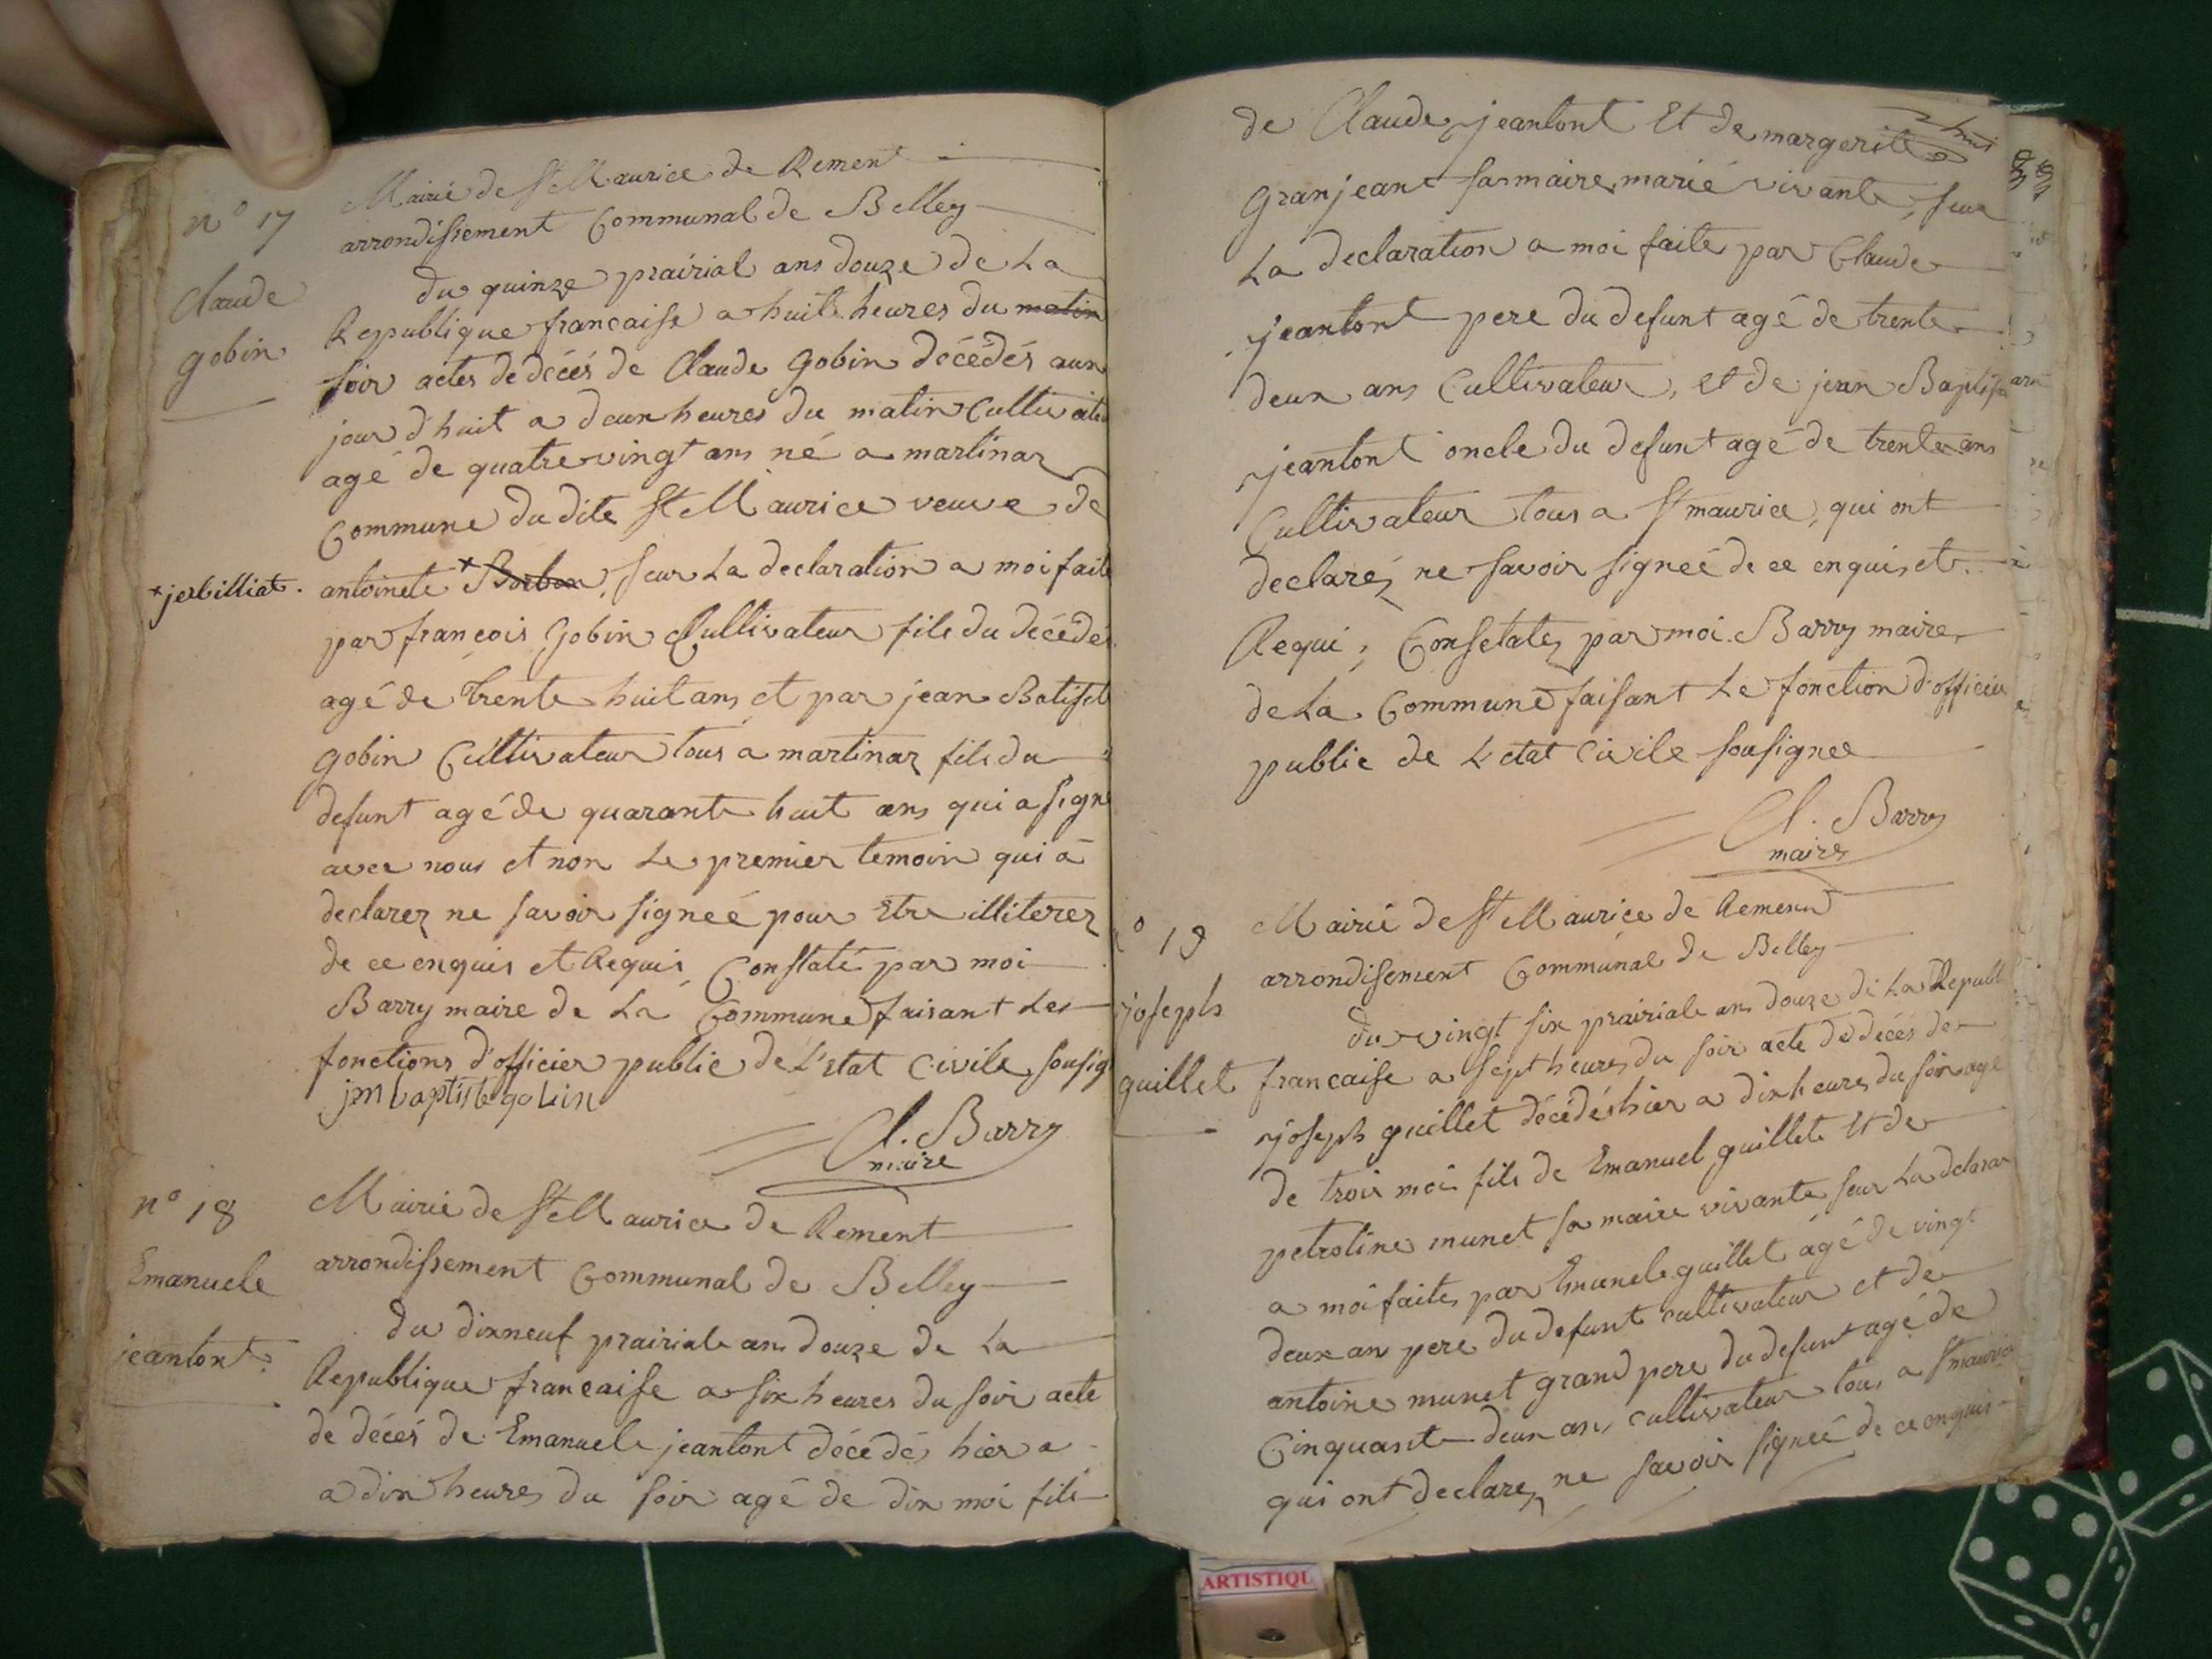 n° 17
Claude
gobin
Mairie de St Maurice de Rement
arrondissement Communal de Belley
du quinze prairial ans douze de La
Republique francaise a huite heures du matin
soir actes de décés de Claude Gobin décédés aux
jour d'huit a deux heures du matin Cultivateu
agé de quatre vingt ans né a martinaz
Commune du dite St Maurice veuve de
*jerbilliat.
antoinete * Borbon, seur La declaration a moi faite
par françois Gobin Cultivateur fils du décédés
agé de trente huit ans et par jean Batiste
Gobin Cultivateur tous a martinaz fils du
defunt agé de quarante huit ans qui a signé
avec nous et non Le premier temoin qui a
declarez ne savoir signeé pour Etre illiterez
de ce enquis et Requis, Constaté par moi
Barry maire de La Commune faisant Les
fonctions d'officier public de L'etat Civile, sousig
jm baptiste gobin
Cl. Barry
maire
n° 18
Emanuele
jeantont
Mairie de St Maurice de Rement
arrondissement Communal de Belley
du dixneuf prairiale ans douze de La
Republique francaise a six heures du soir acte
de décés de Emanuele jeantont décédés hier a
a dix heures du soir agé de dix moi fils
de Claude jeantont Et de margerite
Granjean sa maire marié vivante, seur
La declaration a moi faite par Claude
jeantont pere du defunt agé de trente
deux ans Cultivateur, et de jean Baptiste
jeantont oncle du defunt agé de trente ans
Cultivateur tous a St maurice, qui ont
declarez ne savoir signeé de ce enquis et
Requi, Consetatez par moi Barry maire
de La Commune faisant Le fonction d'officier
public de L'etat Civile sousignee
Cl. Barry
maire
° 19
joseph
guillet
Mairie de St Maurice de Rement
arrondisement Communal de Belley
du vingt six prairiale ans douze de La Republ
francaise a sept heures du soir acte de décés de
joseph guillet décédés hier a dix heures du soir agé
de trois moi fils de Emanuel guillet Et de
petroline munet sa maire vivante seur La declara
a moi faites par Emanuele guillet agé de vingt
deux an pere du defunt cultivateur et de
antoine munet grand pere du defunt agé de
Cinquante deux ans, cultivateur tous a St maurice
qui ont declarez ne savoir signeé de ce enquis
ARTISTIQU